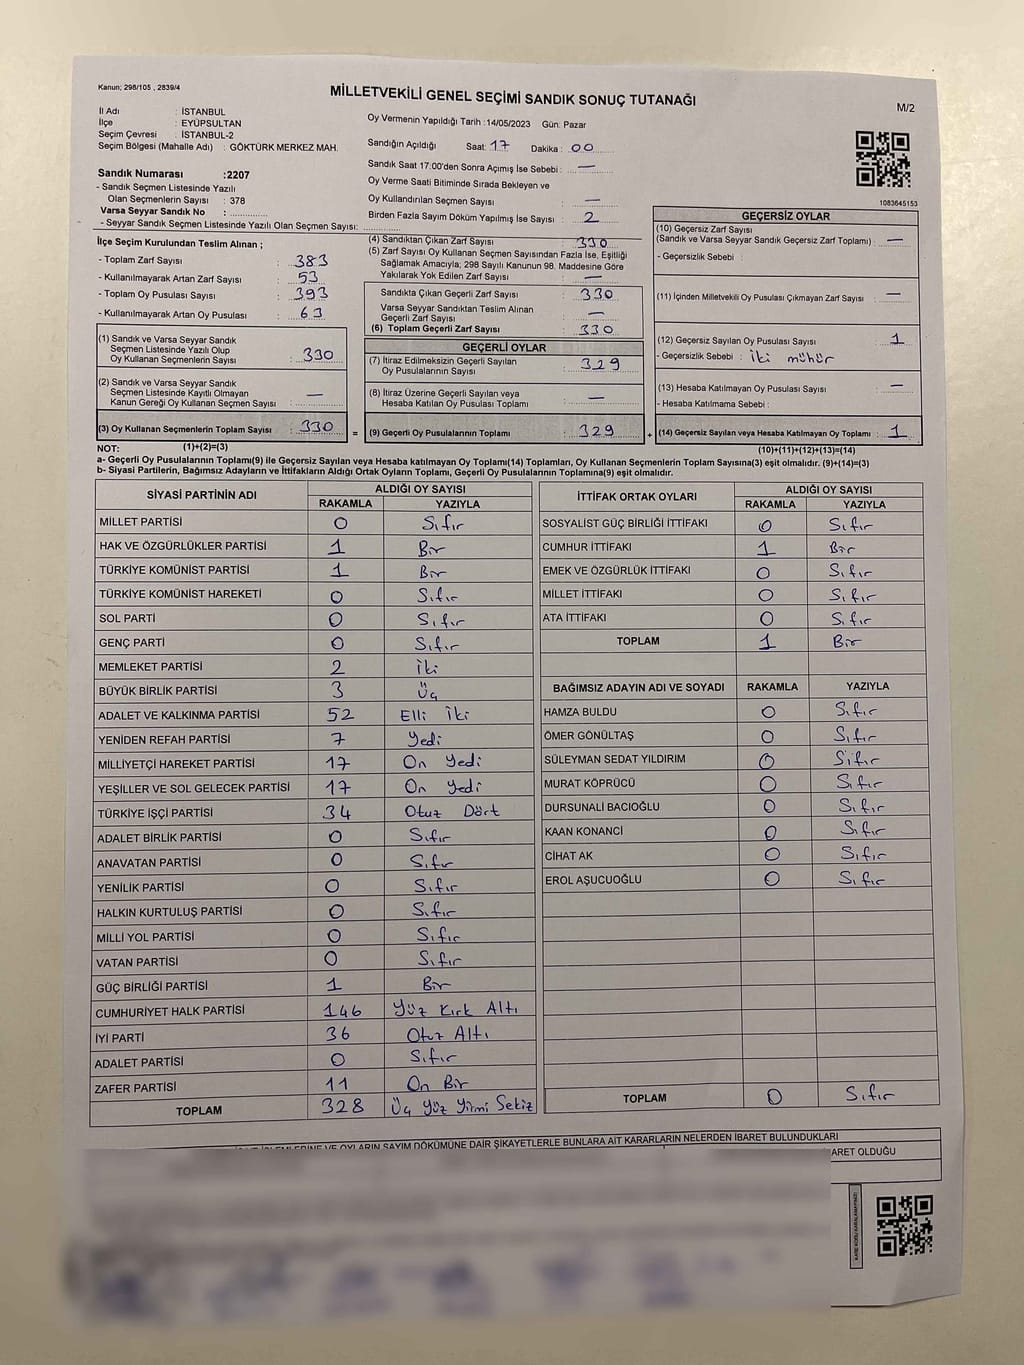 Kanun; 298/105 , 2839/4
MİLLETVEKİLİ GENEL SEÇİMİ SANDIK SONUÇ TUTANAĞI
M/2
İl Adı : İSTANBUL
İlçe : EYÜPSULTAN
Seçim Çevresi : İSTANBUL-2
Seçim Bölgesi (Mahalle Adı) : GÖKTÜRK MERKEZ MAH.
Sandık Numarası :2207
- Sandık Seçmen Listesinde Yazılı
Olan Seçmenlerin Sayısı : 378
Varsa Seyyar Sandık No :
- Seyyar Sandık Seçmen Listesinde Yazılı Olan Seçmen Sayısı:
Oy Vermenin Yapıldığı Tarih :14/05/2023 Gün: Pazar
Sandığın Açıldığı Saat: 17 Dakika : 00
Sandık Saat 17:00'den Sonra Açımış İse Sebebi : —
Oy Verme Saati Bitiminde Sırada Bekleyen ve
Oy Kullandırılan Seçmen Sayısı —
Birden Fazla Sayım Döküm Yapılmış İse Sayısı : 2
1083645153
İlçe Seçim Kurulundan Teslim Alınan ;
- Toplam Zarf Sayısı : 383
- Kullanılmayarak Artan Zarf Sayısı : 53
- Toplam Oy Pusulası Sayısı : 393
- Kullanılmayarak Artan Oy Pusulası : 63
(1) Sandık ve Varsa Seyyar Sandık
Seçmen Listesinde Yazılı Olup
Oy Kullanan Seçmenlerin Sayısı : 330
(2) Sandık ve Varsa Seyyar Sandık
Seçmen Listesinde Kayıtlı Olmayan
Kanun Gereği Oy Kullanan Seçmen Sayısı : —
(3) Oy Kullanan Seçmenlerin Toplam Sayısı : 330
(4) Sandıktan Çıkan Zarf Sayısı : 330
(5) Zarf Sayısı Oy Kullanan Seçmen Sayısından Fazla İse, Eşitliği
Sağlamak Amacıyla; 298 Sayılı Kanunun 98. Maddesine Göre
Yakılarak Yok Edilen Zarf Sayısı : —
Sandıkta Çıkan Geçerli Zarf Sayısı : 330
Varsa Seyyar Sandıktan Teslim Alınan
Geçerli Zarf Sayısı : —
(6) Toplam Geçerli Zarf Sayısı : 330
GEÇERLİ OYLAR
(7) İtiraz Edilmeksizin Geçerli Sayılan
Oy Pusulalarının Sayısı : 329
(8) İtiraz Üzerine Geçerli Sayılan veya
Hesaba Katılan Oy Pusulası Toplamı : —
= (9) Geçerli Oy Pusulalarının Toplamı : 329
GEÇERSİZ OYLAR
(10) Geçersiz Zarf Sayısı
(Sandık ve Varsa Seyyar Sandık Geçersiz Zarf Toplamı) : —
- Geçersizlik Sebebi :
(11) İçinden Milletvekili Oy Pusulası Çıkmayan Zarf Sayısı : —
(12) Geçersiz Sayılan Oy Pusulası Sayısı : 1
- Geçersizlik Sebebi : iki mühür
(13) Hesaba Katılmayan Oy Pusulası Sayısı : —
- Hesaba Katılmama Sebebi :
+ (14) Geçersiz Sayılan veya Hesaba Katılmayan Oy Toplamı : 1
NOT: (1)+(2)=(3)
(10)+(11)+(12)+(13)=(14)
a- Geçerli Oy Pusulalarının Toplamı(9) ile Geçersiz Sayılan veya Hesaba katılmayan Oy Toplamı(14) Toplamları, Oy Kullanan Seçmenlerin Toplam Sayısına(3) eşit olmalıdır. (9)+(14)=(3)
b- Siyasi Partilerin, Bağımsız Adayların ve İttifakların Aldığı Ortak Oyların Toplamı, Geçerli Oy Pusulalarının Toplamına(9) eşit olmalıdır.
SİYASİ PARTİNİN ADI ALDIĞI OY SAYISI
RAKAMLA YAZIYLA
MİLLET PARTİSİ 0 Sıfır
HAK VE ÖZGÜRLÜKLER PARTİSİ 1 Bir
TÜRKİYE KOMÜNİST PARTİSİ 1 Bir
TÜRKİYE KOMÜNİST HAREKETİ 0 Sıfır
SOL PARTİ 0 Sıfır
GENÇ PARTİ 0 Sıfır
MEMLEKET PARTİSİ 2 İki
BÜYÜK BİRLİK PARTİSİ 3 Üç
ADALET VE KALKINMA PARTİSİ 52 Elli İki
YENİDEN REFAH PARTİSİ 7 Yedi
MİLLİYETÇİ HAREKET PARTİSİ 17 On Yedi
YEŞİLLER VE SOL GELECEK PARTİSİ 17 On Yedi
TÜRKİYE İŞÇİ PARTİSİ 34 Otuz Dört
ADALET BİRLİK PARTİSİ 0 Sıfır
ANAVATAN PARTİSİ 0 Sıfır
YENİLİK PARTİSİ 0 Sıfır
HALKIN KURTULUŞ PARTİSİ 0 Sıfır
MİLLİ YOL PARTİSİ 0 Sıfır
VATAN PARTİSİ 0 Sıfır
GÜÇ BİRLİĞİ PARTİSİ 1 Bir
CUMHURİYET HALK PARTİSİ 146 Yüz Kırk Altı
İYİ PARTİ 36 Otuz Altı
ADALET PARTİSİ 0 Sıfır
ZAFER PARTİSİ 11 On Bir
TOPLAM 328 Üç Yüz Yirmi Sekiz
İTTİFAK ORTAK OYLARI ALDIĞI OY SAYISI
RAKAMLA YAZIYLA
SOSYALİST GÜÇ BİRLİĞİ İTTİFAKI 0 Sıfır
CUMHUR İTTİFAKI 1 Bir
EMEK VE ÖZGÜRLÜK İTTİFAKI 0 Sıfır
MİLLET İTTİFAKI 0 Sıfır
ATA İTTİFAKI 0 Sıfır
TOPLAM 1 Bir
BAĞIMSIZ ADAYIN ADI VE SOYADI RAKAMLA YAZIYLA
HAMZA BULDU 0 Sıfır
ÖMER GÖNÜLTAŞ 0 Sıfır
SÜLEYMAN SEDAT YILDIRIM 0 Sıfır
MURAT KÖPRÜCÜ 0 Sıfır
DURSUNALİ BACIOĞLU 0 Sıfır
KAAN KONANCİ 0 Sıfır
CİHAT AK 0 Sıfır
EROL AŞUCUOĞLU 0 Sıfır
TOPLAM 0 Sıfır
İŞLEMLERİNE VE OYLARIN SAYIM DÖKÜMÜNE DAİR ŞİKAYETLERLE BUNLARA AİT KARARLARIN NELERDEN İBARET BULUNDUKLARI
ARET OLDUĞU